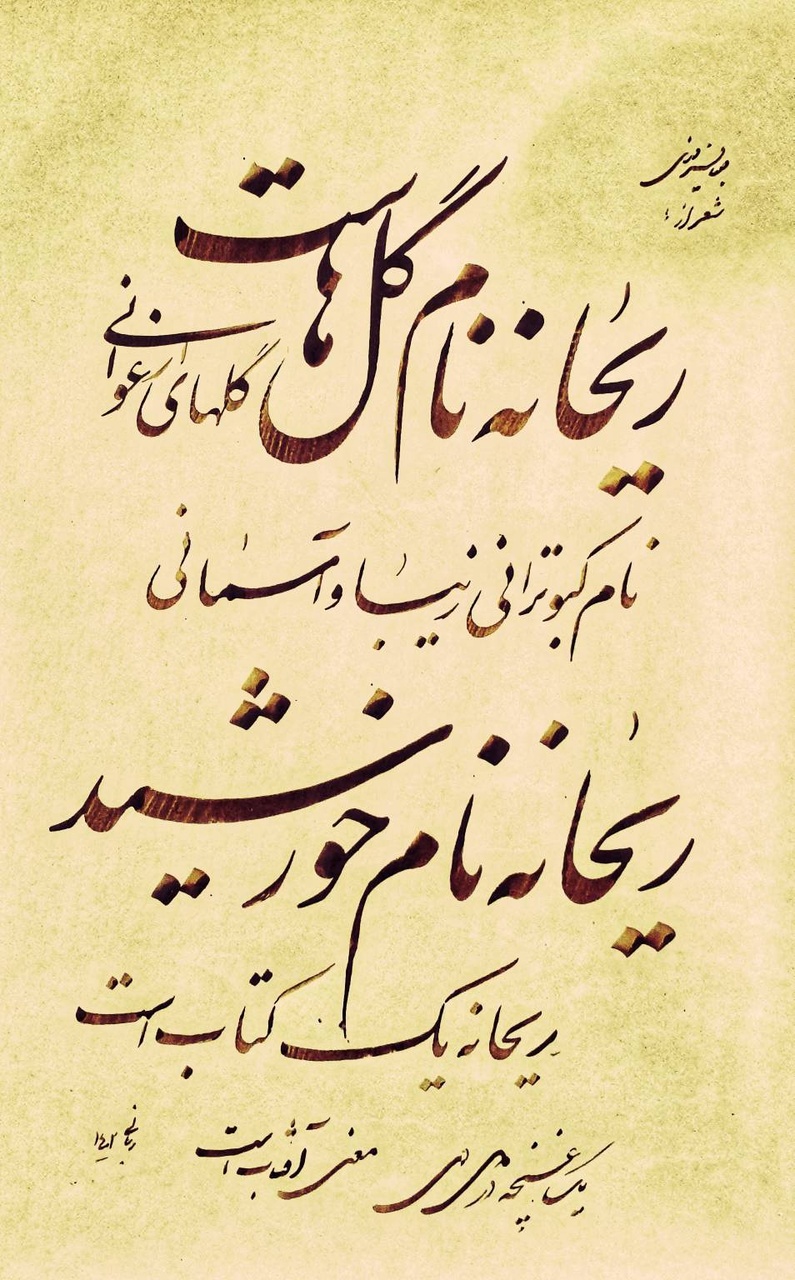 شعر از:
ریحانه نام گل‌هاست
گلهای ارغوانی
نام کبوترانی زیبا و آسمانی
ریحانه نام خورشید
ریحانه یک کتاب است
یک غنچه در دل دی معنی آفتاب است
ربانی ۱۴۰۲